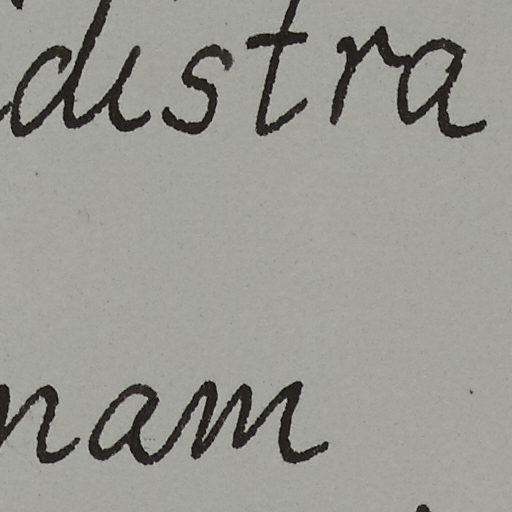 distra
nam